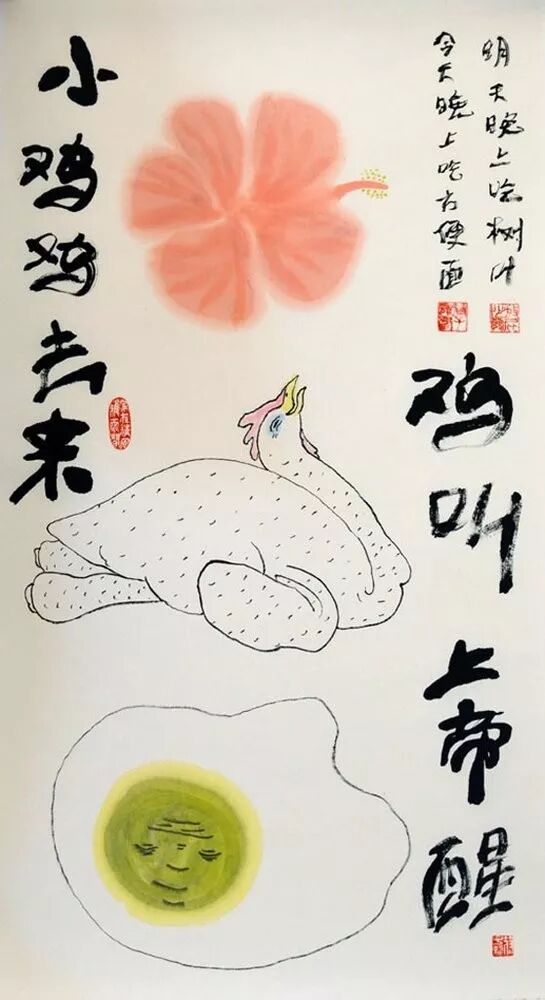 明天晚上吃树叶
今天晚上吃方便面
鸡叫上帝醒
小鸡鸡去来